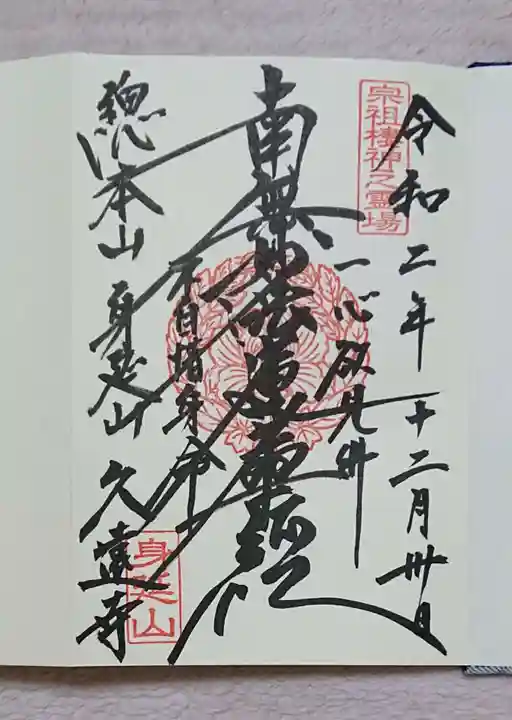 宗祖棲神之霊場
令和二年十二月卅日
一心欲見佛
南無妙法蓮華経
不自惜身命
總本山 身延山 久遠寺
身延山